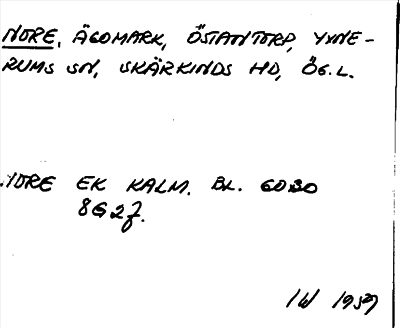 NORE, ÄGOMARK, ÖSTANTORP, YXNE-
RUMS SN, SKÄRKINDS HD, ÖG.L.
NORE EK KALM. BL. 6030
8G 2f.
IW 1959